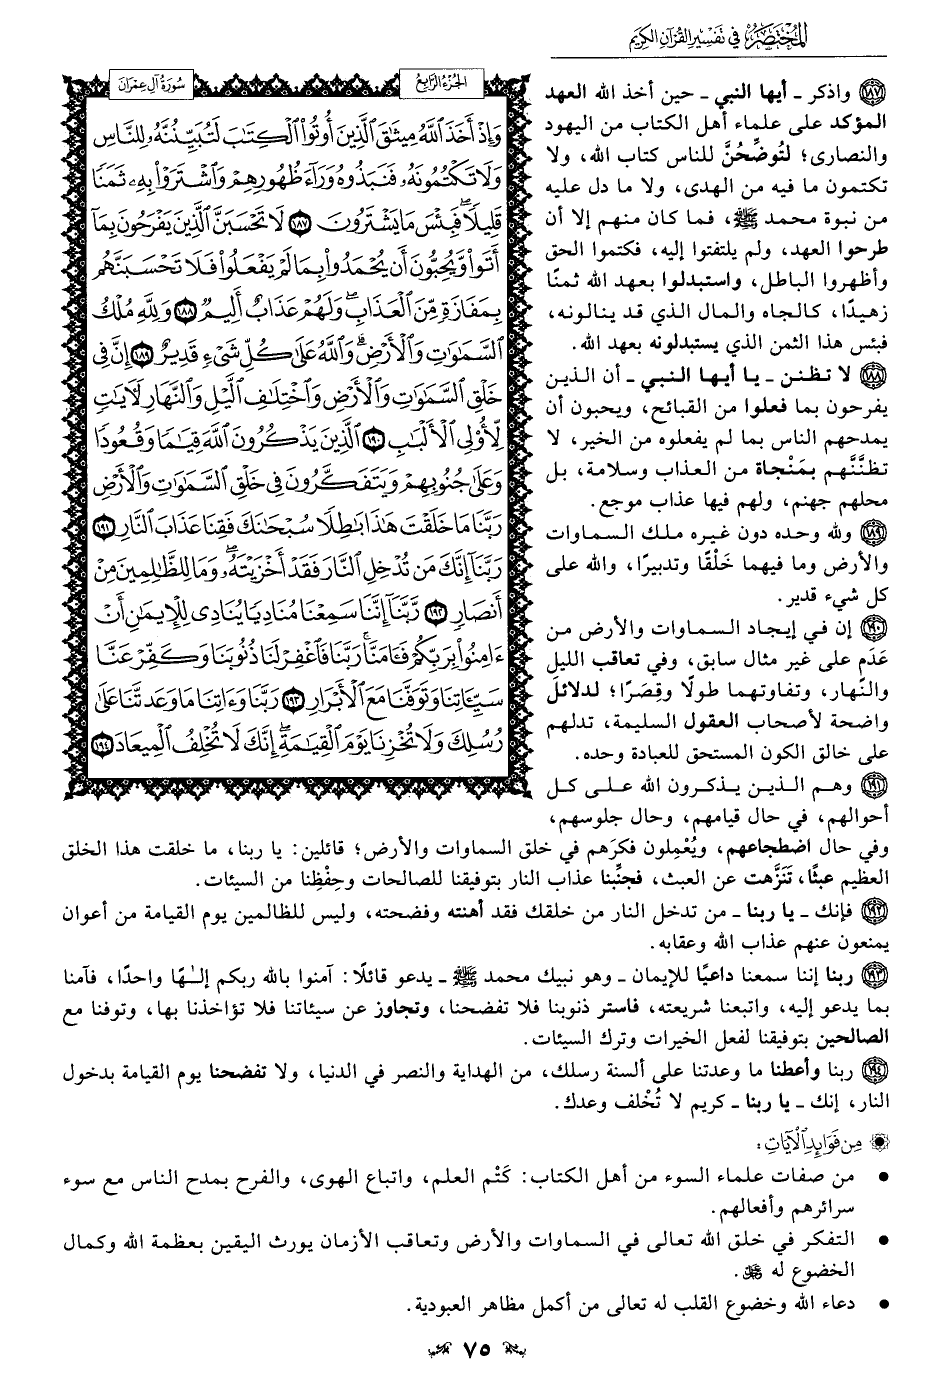 المختصر في تفسير القرآن الكريم
الجزء الرابع
سورة آل عمران
وَإِذْ أَخَذَ ٱللَّهُ مِيثَٰقَ ٱلَّذِينَ أُوتُوا۟ ٱلْكِتَٰبَ لَتُبَيِّنُنَّهُۥ لِلنَّاسِ
وَلَا تَكْتُمُونَهُۥ فَنَبَذُوهُ وَرَآءَ ظُهُورِهِمْ وَٱشْتَرَوْا۟ بِهِۦ ثَمَنًا
قَلِيلًا ۖ فَبِئْسَ مَا يَشْتَرُونَ ١٨٧ لَا تَحْسَبَنَّ ٱلَّذِينَ يَفْرَحُونَ بِمَآ
أَتَوا۟ وَّيُحِبُّونَ أَن يُحْمَدُوا۟ بِمَا لَمْ يَفْعَلُوا۟ فَلَا تَحْسَبَنَّهُم
بِمَفَازَةٍ مِّنَ ٱلْعَذَابِ ۖ وَلَهُمْ عَذَابٌ أَلِيمٌ ١٨٨ وَلِلَّهِ مُلْكُ
ٱلسَّمَٰوَٰتِ وَٱلْأَرْضِ ۗ وَٱللَّهُ عَلَىٰ كُلِّ شَىْءٍ قَدِيرٌ ١٨٩ إِنَّ فِى
خَلْقِ ٱلسَّمَٰوَٰتِ وَٱلْأَرْضِ وَٱخْتِلَٰفِ ٱلَّيْلِ وَٱلنَّهَارِ لَءَايَٰتٍ
لِّأُو۟لِى ٱلْأَلْبَٰبِ ١٩٠ ٱلَّذِينَ يَذْكُرُونَ ٱللَّهَ قِيَٰمًا وَقُعُودًا
وَعَلَىٰ جُنُوبِهِمْ وَيَتَفَكَّرُونَ فِى خَلْقِ ٱلسَّمَٰوَٰتِ وَٱلْأَرْضِ
رَبَّنَا مَا خَلَقْتَ هَٰذَا بَٰطِلًا سُبْحَٰنَكَ فَقِنَا عَذَابَ ٱلنَّارِ ١٩١
رَبَّنَآ إِنَّكَ مَن تُدْخِلِ ٱلنَّارَ فَقَدْ أَخْزَيْتَهُۥ ۖ وَمَا لِلظَّٰلِمِينَ مِنْ
أَنصَارٍ ١٩٢ رَّبَّنَآ إِنَّنَا سَمِعْنَا مُنَادِيًا يُنَادِى لِلْإِيمَٰنِ أَنْ
ءَامِنُوا۟ بِرَبِّكُمْ فَـَٔامَنَّا ۚ رَبَّنَا فَٱغْفِرْ لَنَا ذُنُوبَنَا وَكَفِّرْ عَنَّا
سَيِّـَٔاتِنَا وَتَوَفَّنَا مَعَ ٱلْأَبْرَارِ ١٩٣ رَبَّنَا وَءَاتِنَا مَا وَعَدتَّنَا عَلَىٰ
رُسُلِكَ وَلَا تُخْزِنَا يَوْمَ ٱلْقِيَٰمَةِ ۗ إِنَّكَ لَا تُخْلِفُ ٱلْمِيعَادَ ١٩٤
١٨٧ واذكر ـ أيها النبي ـ حين أخذ الله العهد
المؤكد على علماء أهل الكتاب من اليهود
والنصارى؛ لتُوضِّحُنَّ للناس كتاب الله، ولا
تكتمون ما فيه من الهدى، ولا ما دل عليه
من نبوة محمد ﷺ، فما كان منهم إلا أن
طرحوا العهد، ولم يلتفتوا إليه، فكتموا الحق
وأظهروا الباطل، واستبدلوا بعهد الله ثمنًا
زهيدًا، كالجاه والمال الذي قد ينالونه،
فبئس هذا الثمن الذي يستبدلونه بعهد الله.
١٨٨ لا تظنن ـ يا أيها النبي ـ أن الذين
يفرحون بما فعلوا من القبائح، ويحبون أن
يمدحهم الناس بما لم يفعلوه من الخير، لا
تظنَّنَّهم بمَنْجاة من العذاب وسلامة، بل
محلهم جهنم، ولهم فيها عذاب موجع.
١٨٩ ولله وحده دون غيره ملك السماوات
والأرض وما فيهما خَلْقًا وتدبيرًا، والله على
كل شيء قدير.
١٩٠ إن في إيجاد السماوات والأرض من
عَدَم على غير مثال سابق، وفي تعاقب الليل
والنهار، وتفاوتهما طولًا وقِصَرًا؛ لدلائلَ
واضحة لأصحاب العقول السليمة، تدلهم
على خالق الكون المستحق للعبادة وحده.
١٩١ وهم الذين يذكرون الله على كل
أحوالهم، في حال قيامهم، وحال جلوسهم،
وفي حال اضطجاعهم، ويُعْمِلون فكرَهم في خلق السماوات والأرض؛ قائلين: يا ربنا، ما خلقت هذا الخلق
العظيم عبثًا، تَنَزَّهت عن العبث، فجنِّبنا عذاب النار بتوفيقنا للصالحات وحِفْظِنا من السيئات.
١٩٢ فإنك ـ يا ربنا ـ من تدخل النار من خلقك فقد أهنته وفضحته، وليس للظالمين يوم القيامة من أعوان
يمنعون عنهم عذاب الله وعقابه.
١٩٣ ربنا إننا سمعنا داعيًا للإيمان ـ وهو نبيك محمد ﷺ ـ يدعو قائلًا: آمنوا بالله ربكم إلـٰهًا واحدًا، فآمنا
بما يدعو إليه، واتبعنا شريعته، فاستر ذنوبنا فلا تفضحنا، وتجاوز عن سيئاتنا فلا تؤاخذنا بها، وتوفنا مع
الصالحين بتوفيقنا لفعل الخيرات وترك السيئات.
١٩٤ ربنا وأعطنا ما وعدتنا على ألسنة رسلك، من الهداية والنصر في الدنيا، ولا تفضحنا يوم القيامة بدخول
النار، إنك ـ يا ربنا ـ كريم لا تُخْلف وعدك.
من فوائد الآيات:
• من صفات علماء السوء من أهل الكتاب: كَتْم العلم، واتباع الهوى، والفرح بمدح الناس مع سوء
سرائرهم وأفعالهم.
• التفكر في خلق الله تعالى في السماوات والأرض وتعاقب الأزمان يورث اليقين بعظمة الله وكمال
الخضوع له ﷻ.
• دعاء الله وخضوع القلب له تعالى من أكمل مظاهر العبودية.
٧٥